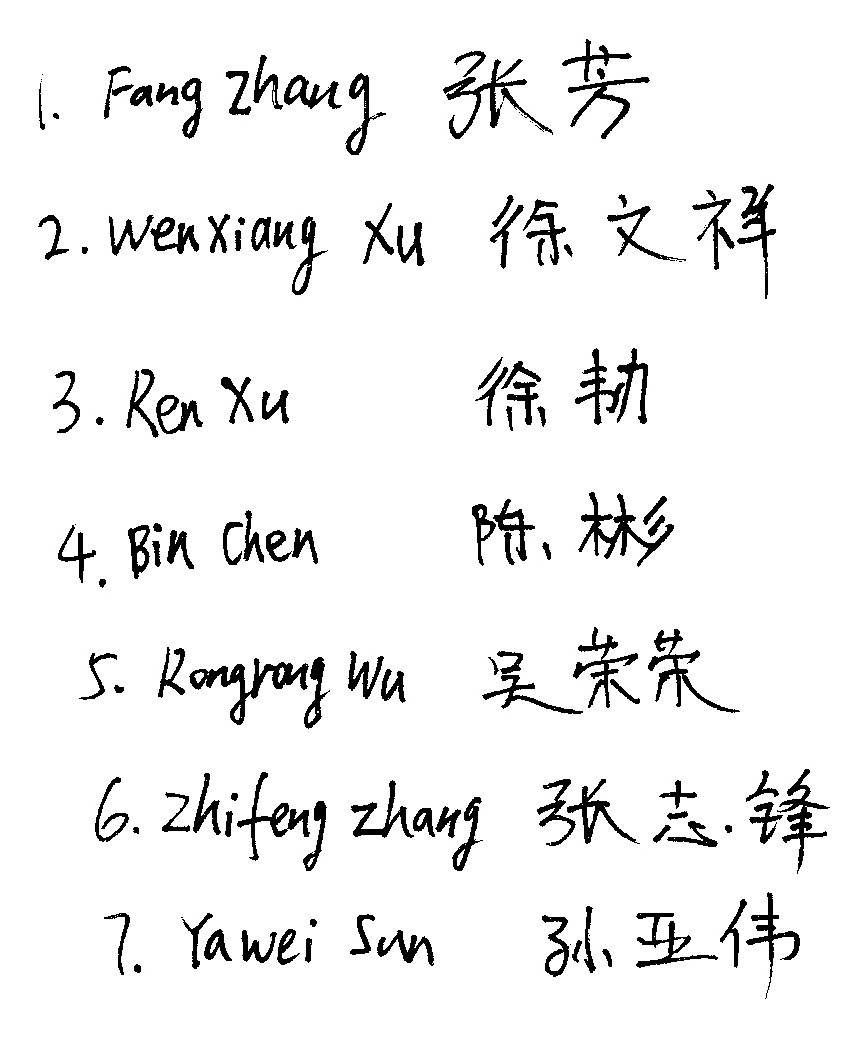 1. Fang Zhang 张芳
2. Wenxiang Xu 徐文祥
3. Ren Xu 徐韧
4. Bin Chen 陈彬
5. Rongrong Wu 吴荣荣
6. Zhifeng Zhang 张志锋
7. Yawei Sun 孙亚伟